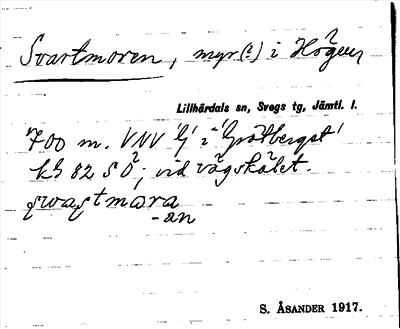 Svartmoren, myr(?) i Högen
Lillhärdals sn, Svegs tg, Jämtl. l.
700 m. VNV 'G' i 'Gråtberget'
kB 82 SÖ; vid vägskälet.
swastmora
-an
S. ÅSANDER 1917.